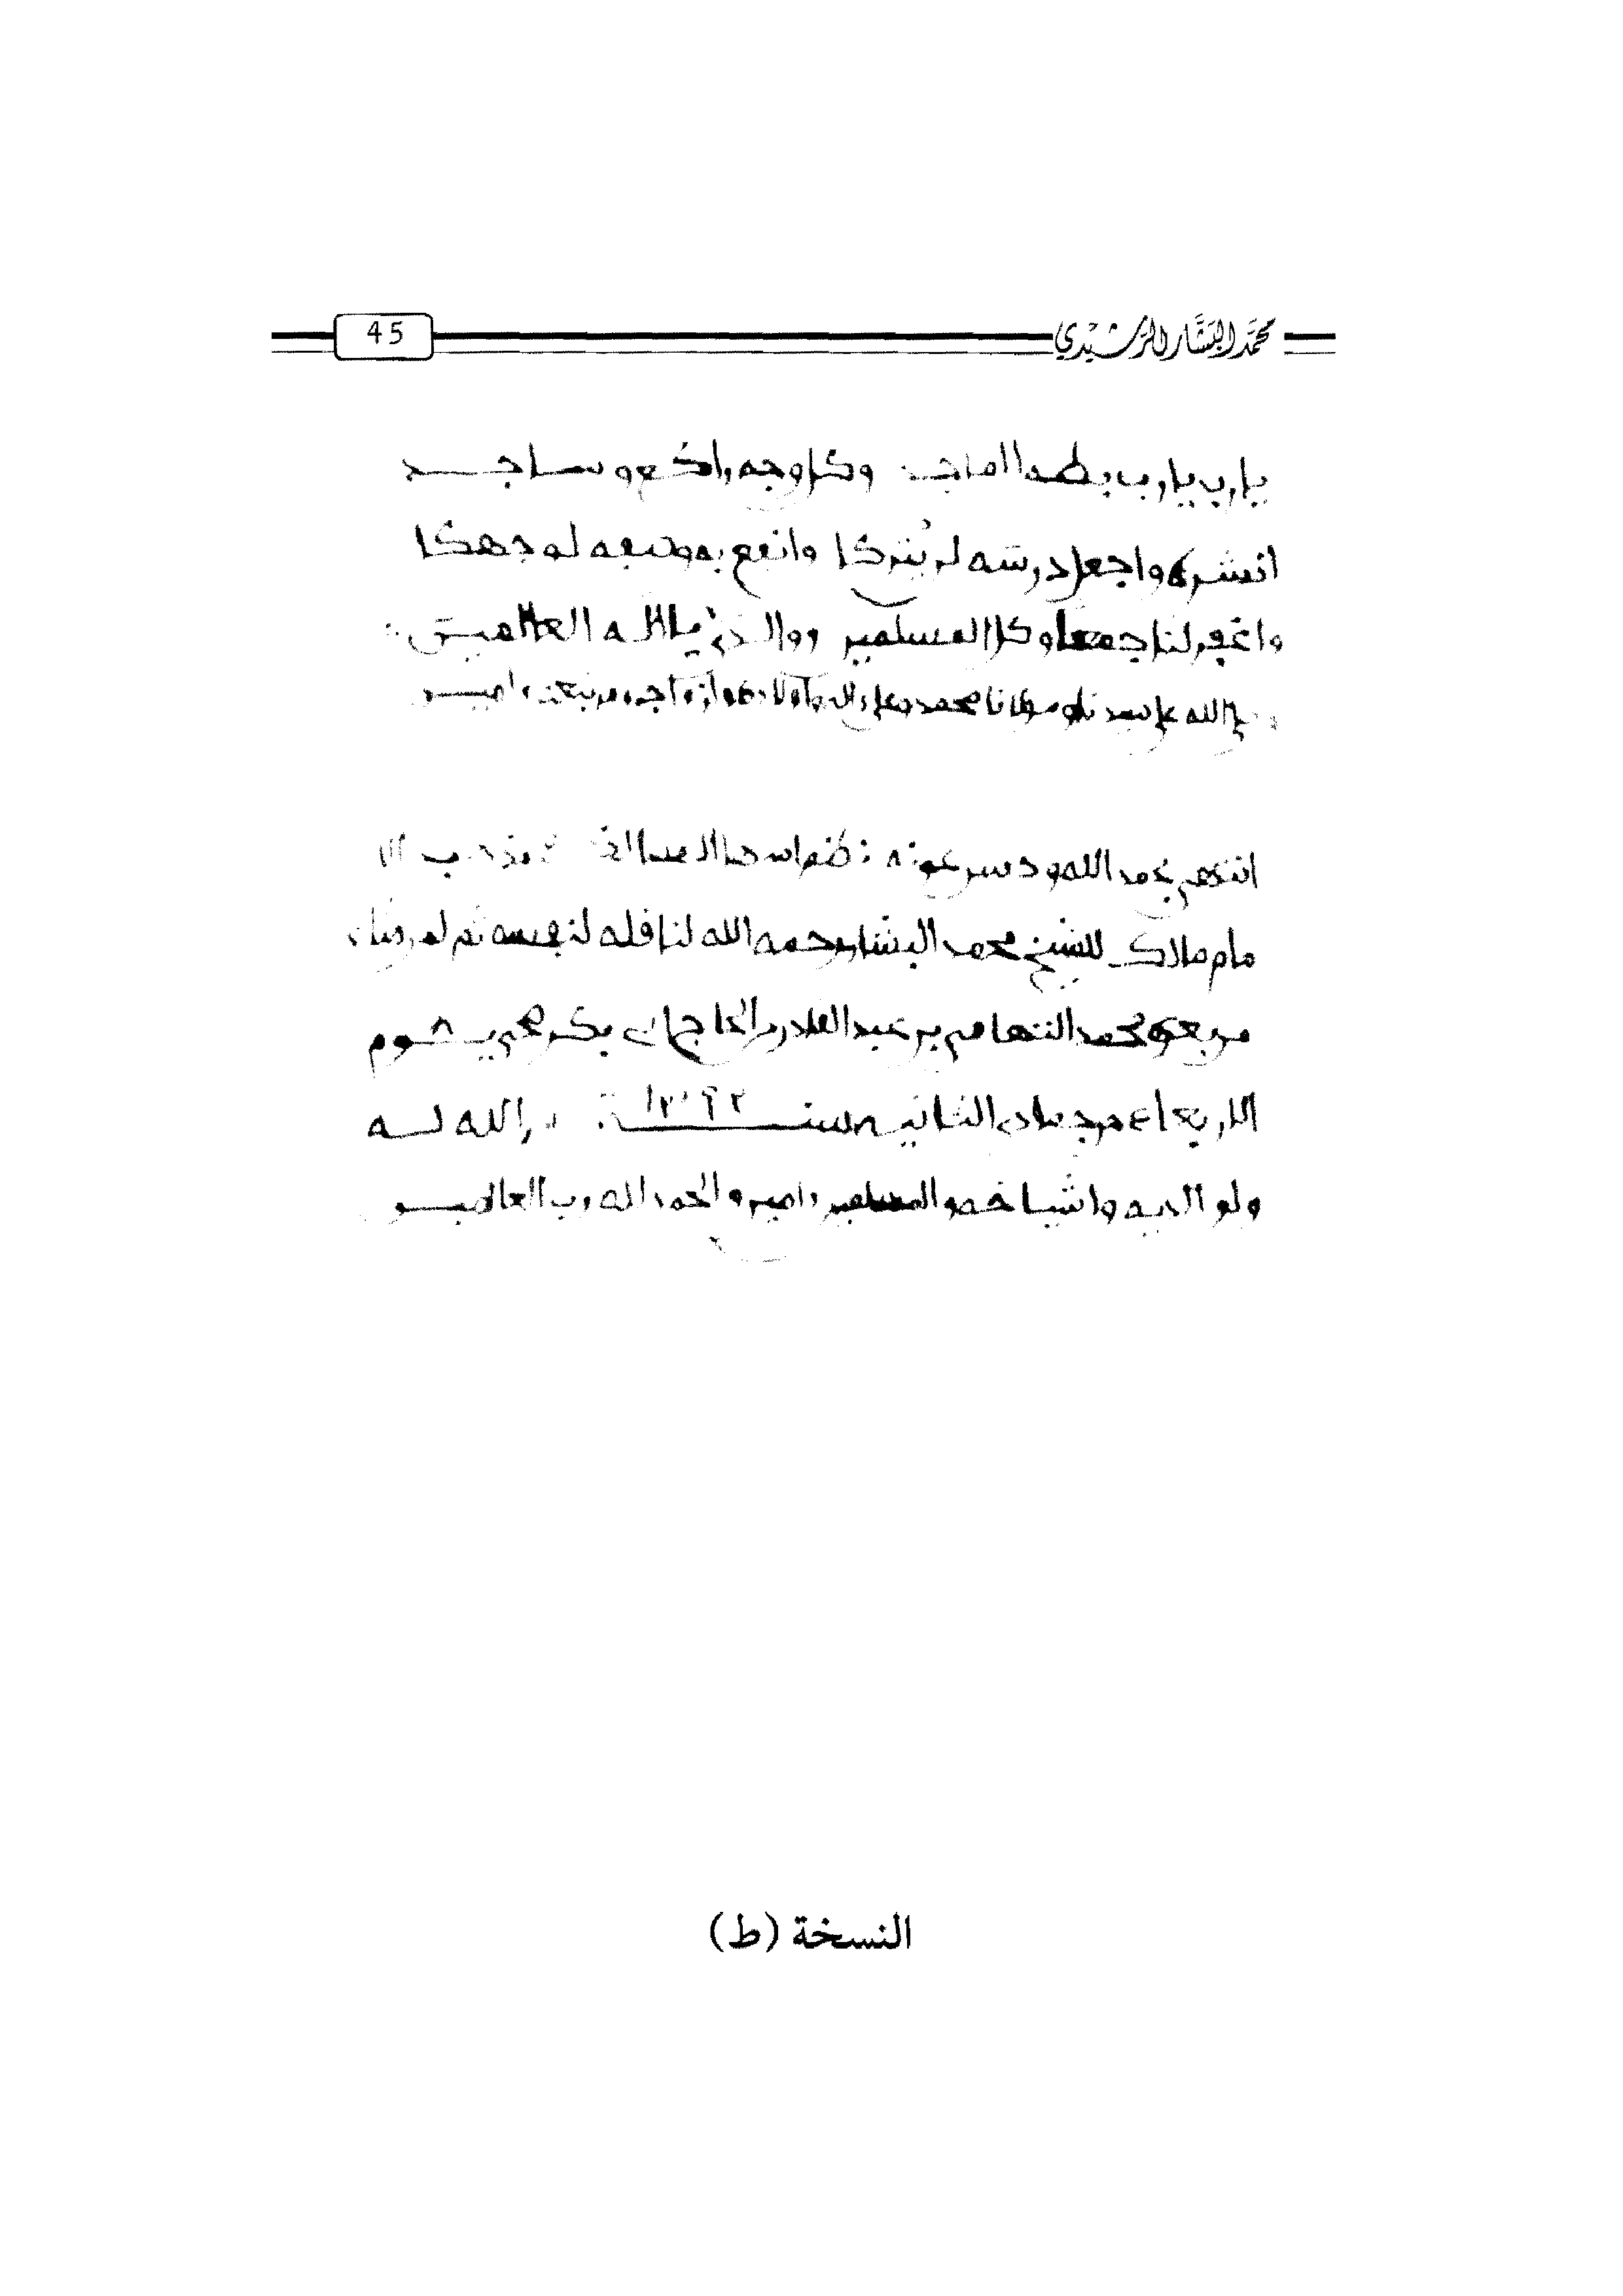 محمد البشار الرشيدي
45
يارب يارب بطه الماجد وكل وجه راكع وساجد
انشره واجعل درسه لن يتركا وانفع به وضعه لوجهكا
واغفر لنا جمعا وكل المسلمين ووالدي يا اله العالمين
الله على سيدنا ومولانا محمد وعلى اله واولاده وازواجه ومن تبعه امين
انتهى بحمد الله وحسن عونه نظم اسهل المسالك مذهب الا
مام مالك للشيخ محمد البشار رحمه الله لناقله لنفسه ثم لمن شاء
من بعده محمد التهامي بن عبد القادر بن الحاج بكر يوم
الاربعاء من جمادى الثانية سنة الله له
ولوالديه واشياخه والمسلمين امين والحمد لله رب العالمين
النسخة (ط)